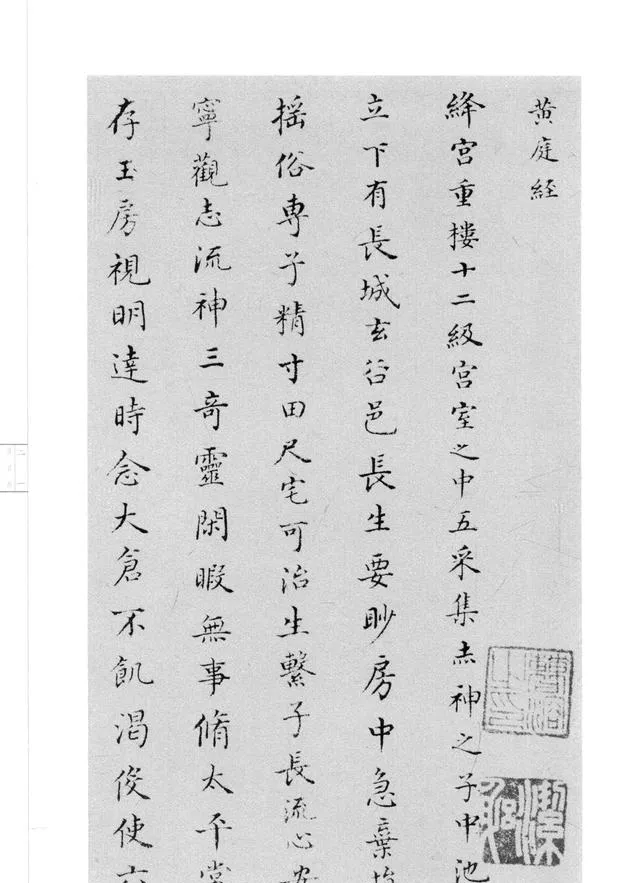 黄庭经
絳宮重樓十二級宮室之中五采集赤神之子中池
立下有長城玄谷邑長生要眇房中急棄
搖俗專子精寸田尺宅可治生繫子長流心安
寧觀志流神三奇靈閑暇無事脩太平常
存玉房視明達時念大倉不飢渴役使六